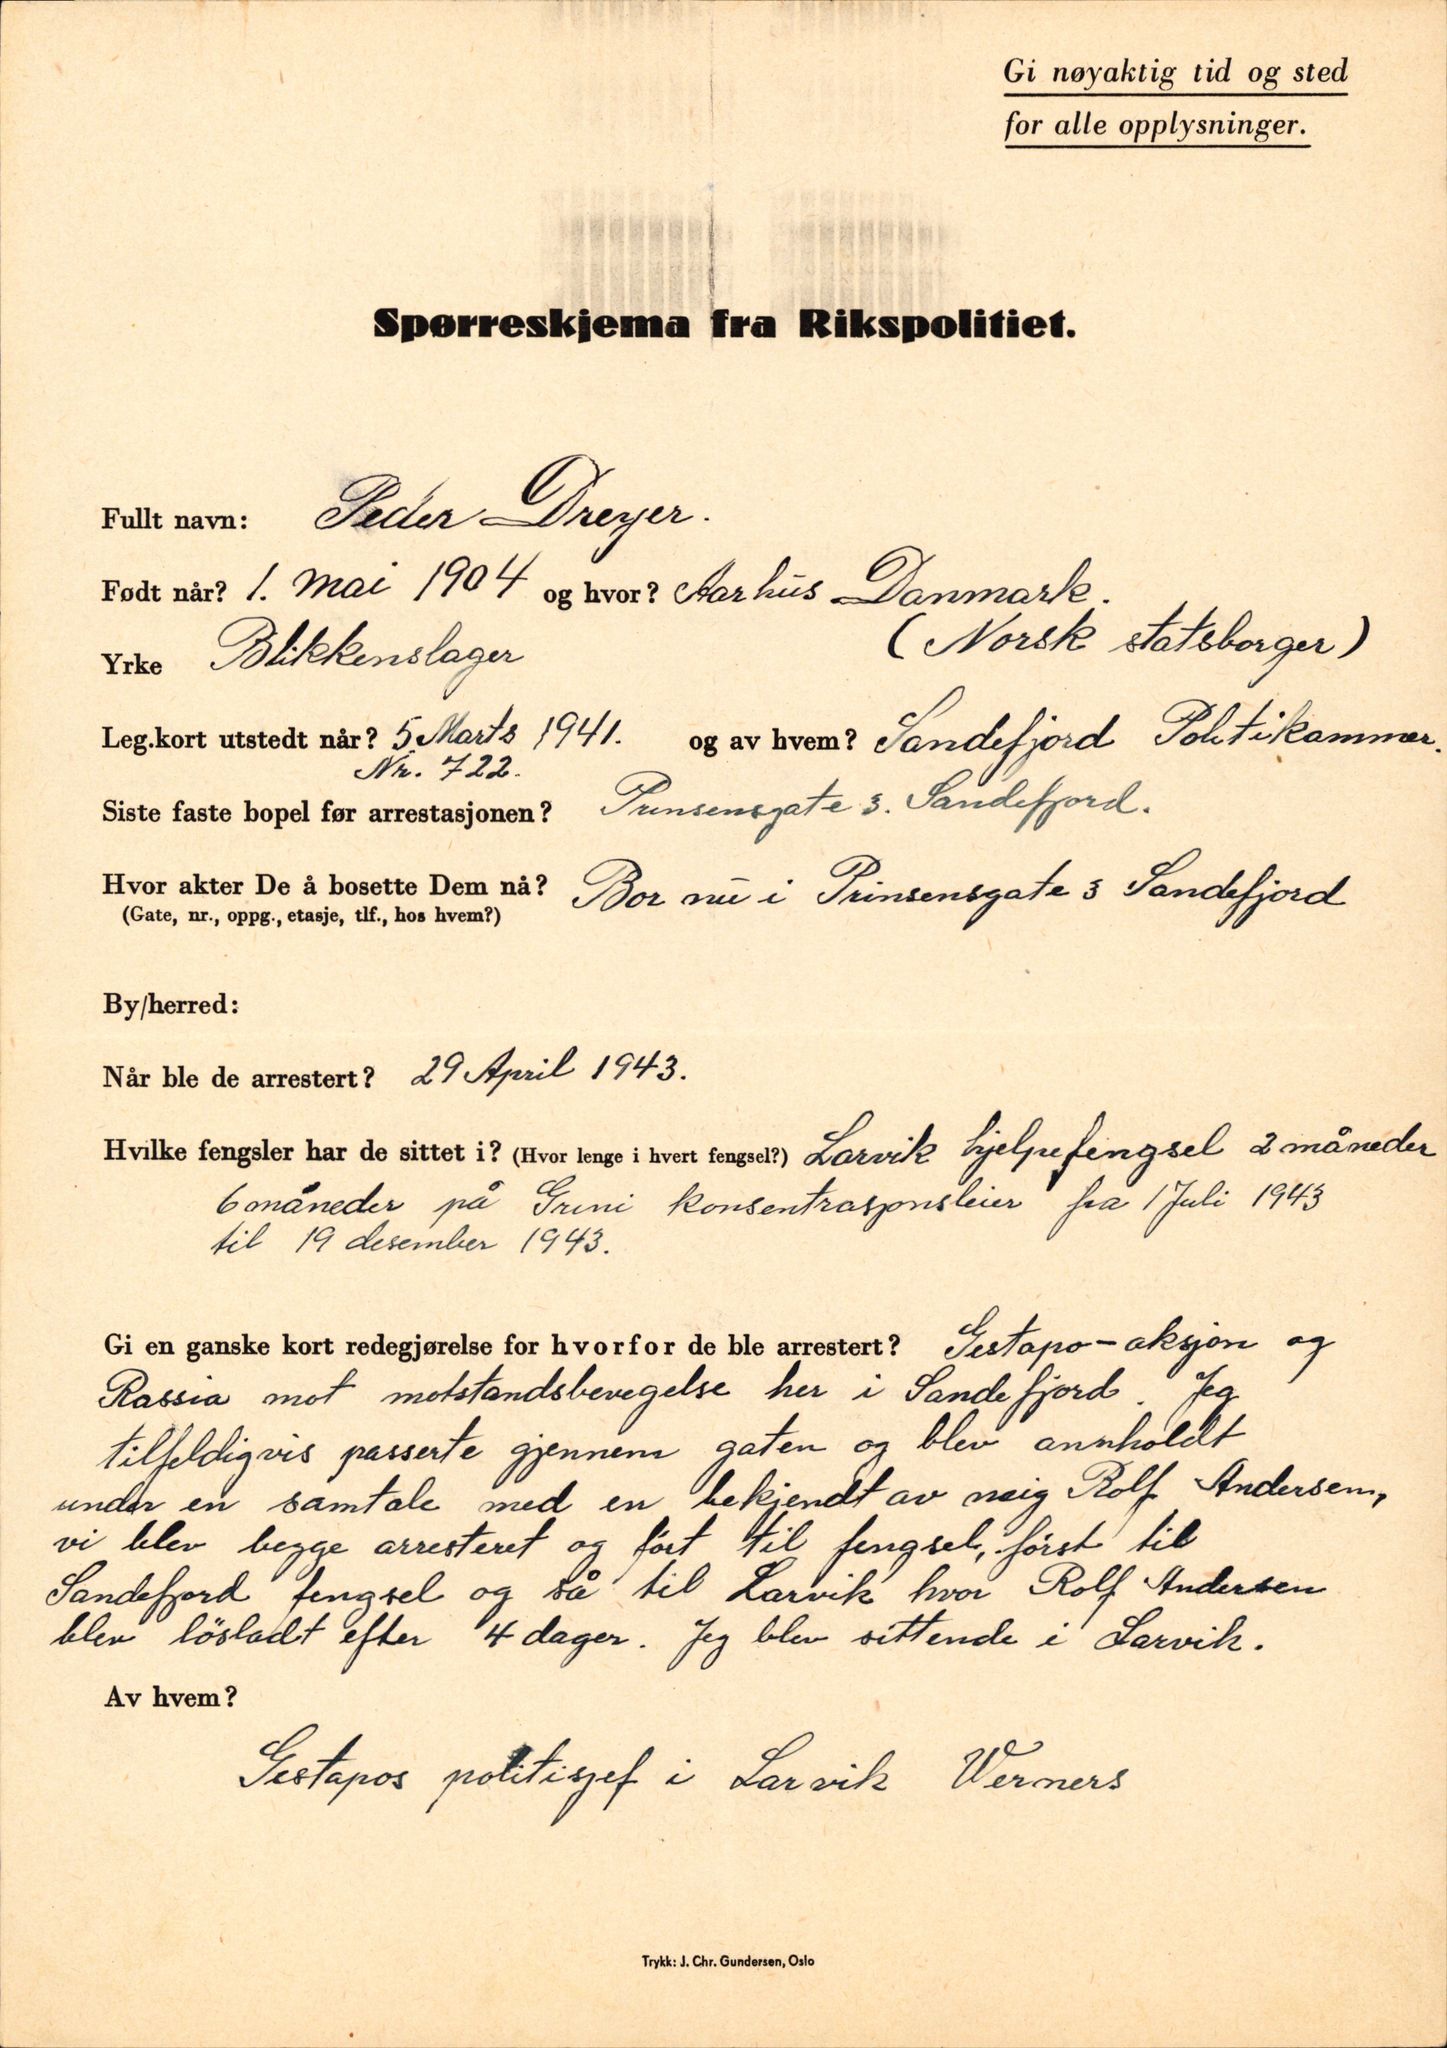 Gi nøyaktig tid og sted
for alle opplysninger.
Spørreskjema fra Rikspolitiet.
Fullt navn: Peder Dreyer.
Født når? 1. Mai 1904 og hvor? Aarhus Danmark.
(Norsk statsborger)
Yrke Blikkenslager
Leg.kort utstedt når? 5 Marts 1941. og av hvem? Sandefjord Politikammer.
Nr. 722.
Siste faste bopel før arrestasjonen? Prinsensgate 3. Sandefjord.
Hvor akter De å bosette Dem nå? Bor nu i Prinsensgate 3 Sandefjord
(Gate, nr., oppg., etasje, tlf., hos hvem?)
By/herred:
Når ble de arrestert? 29 April 1943.
Hvilke fengsler har de sittet i? (Hvor lenge i hvert fengsel?) Larvik hjelpefengsel 2 måneder
6 måneder på Grini konsentrasjonsleier fra 1 Juli 1943
til 19 desember 1943.
Gi en ganske kort redegjørelse for hvorfor de ble arrestert? Gestapo-aksjon og
Rassia mot motstandsbevegelse her i Sandefjord. Jeg
tilfeldigvis passerte gjennem gaten og blev annholdt
under en samtale med en bekjendt av meig Rolf Andersen,
vi blev begge arresteret og ført til fengsel, først til
Sandefjord fengsel og så til Larvik hvor Rolf Andersen
blev lösladt efter 4 dager. Jeg blev sittende i Larvik.
Av hvem?
Gestapos politisjef i Larvik Werners
Trykk: J. Chr. Gundersen, Oslo